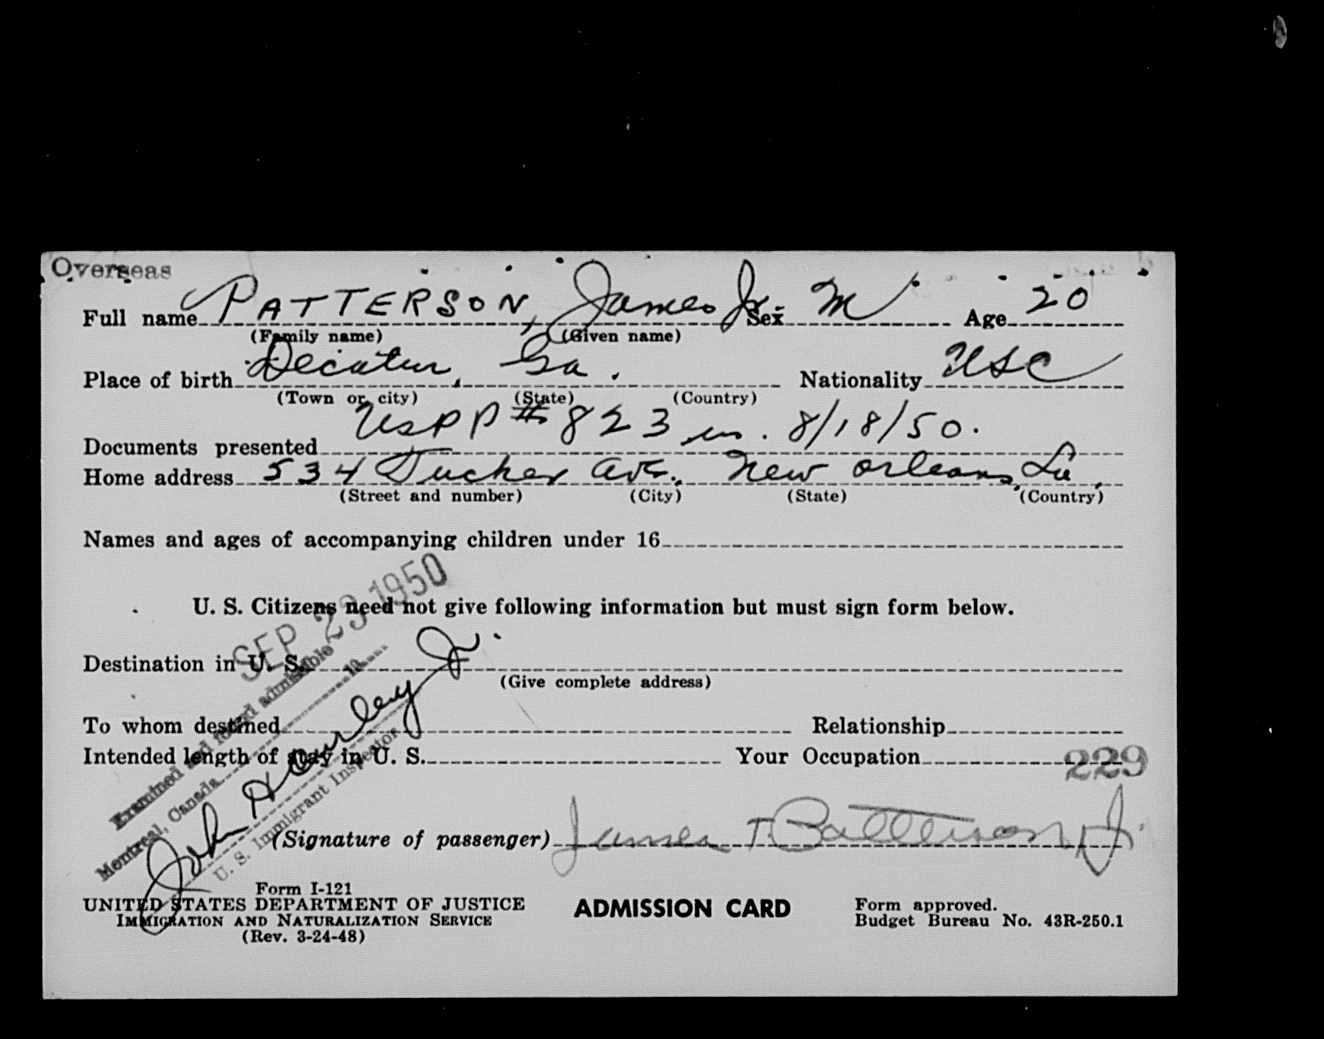 Overseas
Full name PATTERSON, James Jr. Sex M Age 20
(Family name) (Given name)
Place of birth Decatur, Ga. Nationality USC
(Town or city) (State) (Country)
Documents presented USPP # 823 iss. 8/18/50.
Home address 534 Tucker Ave. New Orleans, La.
(Street and number) (City) (State) (Country)
Names and ages of accompanying children under 16
U. S. Citizens need not give following information but must sign form below.
SEP 29 1950
Destination in U. S.
(Give complete address)
To whom destined Relationship
Intended length of stay in U. S. Your Occupation
229
Examined and found admissible
Montreal, Canada 19
John Hourley Jr.
U. S. Immigrant Inspector
(Signature of passenger) James T. Patterson, Jr.
Form I-121
UNITED STATES DEPARTMENT OF JUSTICE
IMMIGRATION AND NATURALIZATION SERVICE
(Rev. 3-24-48)
ADMISSION CARD
Form approved.
Budget Bureau No. 43R-250.1